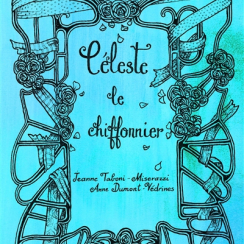 Céleste
le
chiffonnier
Jeanne Taboni-Miserazzi
Anne Dumont-Védrines